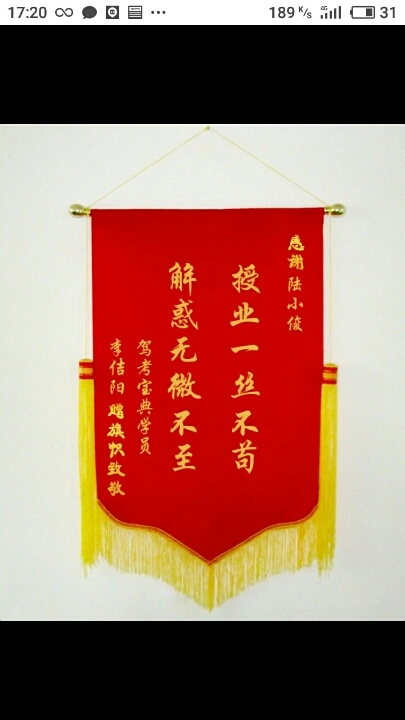 17:20
189 K/s 4G 31
感謝陆小俊
授业一丝不苟
解惑无微不至
驾考宝典学员
李佶阳 赠旗帜致敬